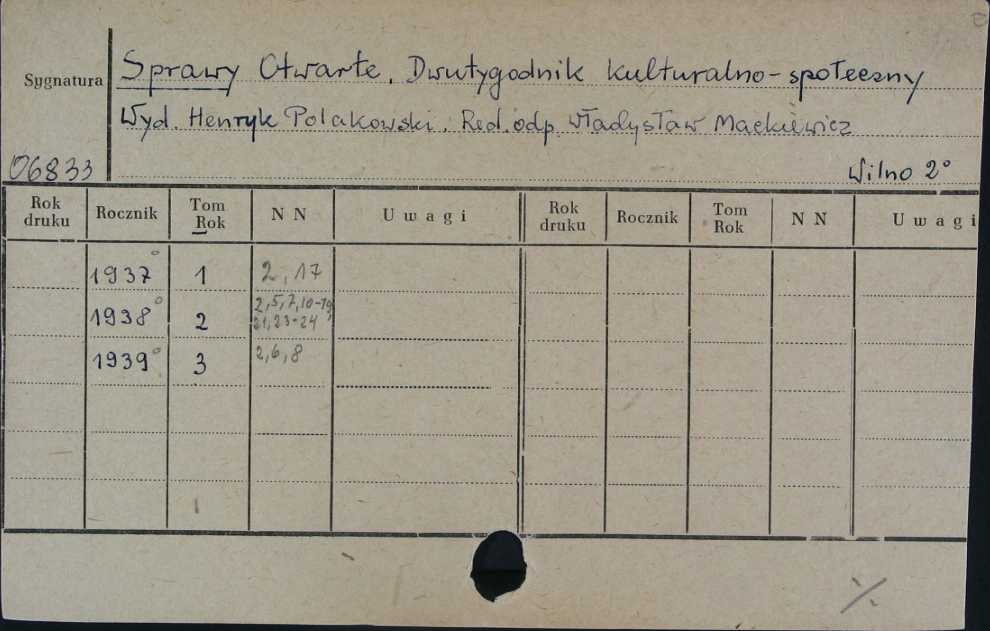 Sygnatura
Sprawy Otwarte. Dwutygodnik kulturalno-społeczny
Wyd. Henryk Polakowski. Red. odp. Władysław Mackiewicz
06833
Wilno 2°
Rok druku Rocznik Tom Rok N N Uwagi Rok druku Rocznik Tom Rok N N Uwagi
1937° 1 2, 17
1938° 2 2,5,7,10-19,
21,23-24
1939° 3 2,6,8